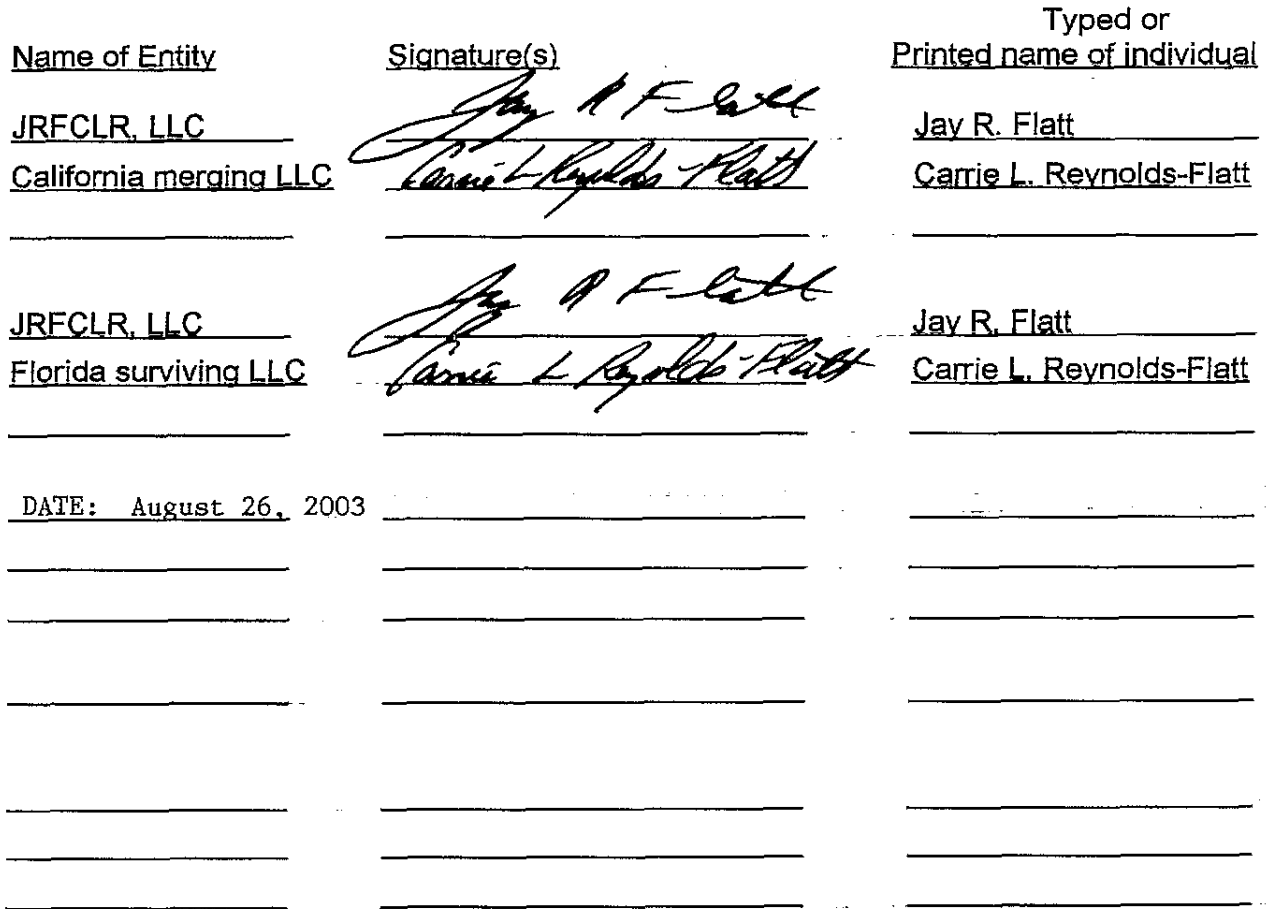 Typed or
Name of Entity Signature(s) Printed name of individual
JRFCLR, LLC Jay R Flatt Jay R. Flatt
California merging LLC Carrie L Reynolds-Flatt Carrie L. Reynolds-Flatt
JRFCLR, LLC Jay R Flatt Jay R. Flatt
Florida surviving LLC Carrie L Reynolds-Flatt Carrie L. Reynolds-Flatt
DATE: August 26, 2003